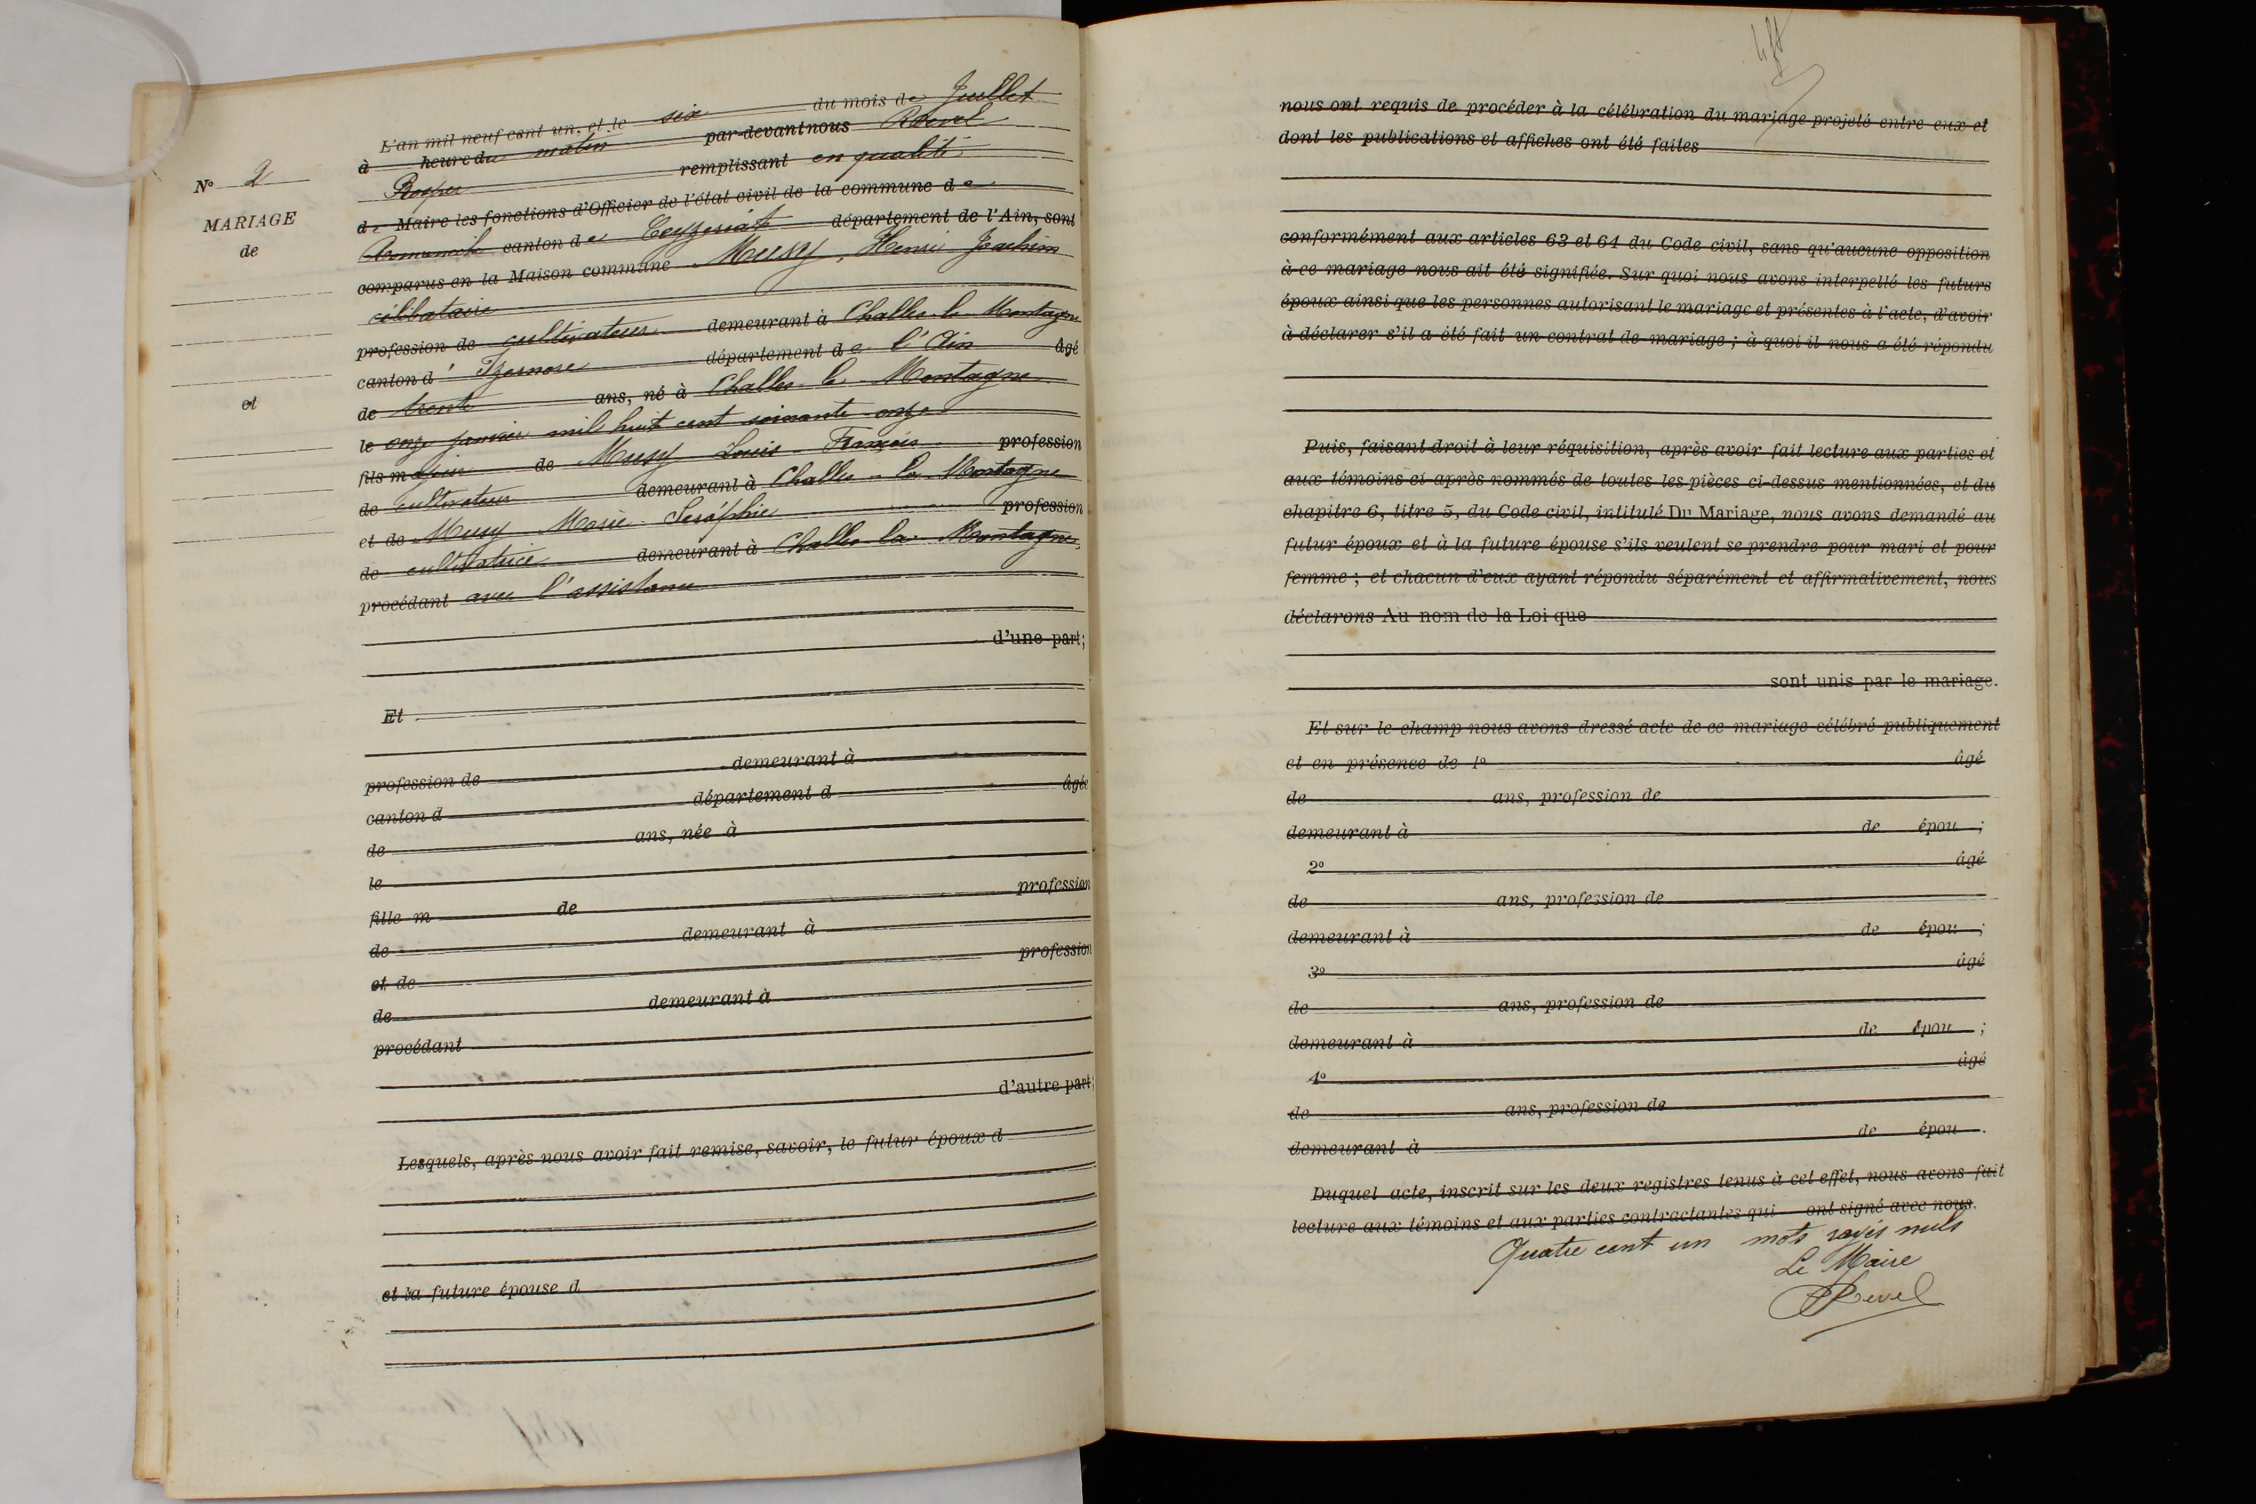 N° 2
MARIAGE
de
et
L'an mil neuf cent un, et le six du mois de Juillet
à heure du matin par-devant nous Revel
Prosper remplissant en qualité
de Maire les fonctions d'Officier de l'état civil de la commune de
canton de Ceyzériat département de l'Ain, sont
comparus en la Maison commune MUSY, Henri Joachim
célibataire
profession de cultivateur demeurant à Challes la Montagne
canton d'Izernore département de l'Ain âgé
de trente ans, né à Challes la Montagne
le onze janvier mil huit cent soixante-onze
fils majeur de Musy Louis François profession
de cultivateur demeurant à Challes la Montagne
et de Musy Marie Séraphie profession
de cultivatrice demeurant à Challes la Montagne,
procédant avec l'assistance
d'une part;
Et
demeurant à
profession de
canton d département d âgée
de ans, née à
le
fille m de profession
de demeurant à
et de profession
de demeurant à
procédant
d'autre part;
Lesquels, après nous avoir fait remise, savoir, le futur époux d
et la future épouse d
nous ont requis de procéder à la célébration du mariage projeté entre eux et
dont les publications et affiches ont été faites
conformément aux articles 63 et 64 du Code civil, sans qu'aucune opposition
à ce mariage nous ait été signifiée. Sur quoi nous avons interpellé les futurs
époux ainsi que les personnes autorisant le mariage et présentes à l'acte, d'avoir
à déclarer s'il a été fait un contrat de mariage ; à quoi il nous a été répondu
Puis, faisant droit à leur réquisition, après avoir fait lecture aux parties et
aux témoins ci-après nommés de toutes les pièces ci-dessus mentionnées, et du
chapitre 6, titre 5, du Code civil, intitulé Du Mariage, nous avons demandé au
futur époux et à la future épouse s'ils veulent se prendre pour mari et pour
femme ; et chacun d'eux ayant répondu séparément et affirmativement, nous
déclarons Au nom de la Loi que
sont unis par le mariage.
Et sur le champ nous avons dressé acte de ce mariage célébré publiquement
et en présence de 1° âgé
de ans, profession de
demeurant à de épou ;
2° âgé
de ans, profession de
demeurant à de épou ;
3° âgé
de ans, profession de
demeurant à de épou ;
4° âgé
de ans, profession de
demeurant à de épou .
Duquel acte, inscrit sur les deux registres tenus à cet effet, nous avons fait
lecture aux témoins et aux parties contractantes qui ont signé avec nous.
Quatre cent un mots rayés nuls
Le Maire
PRevel